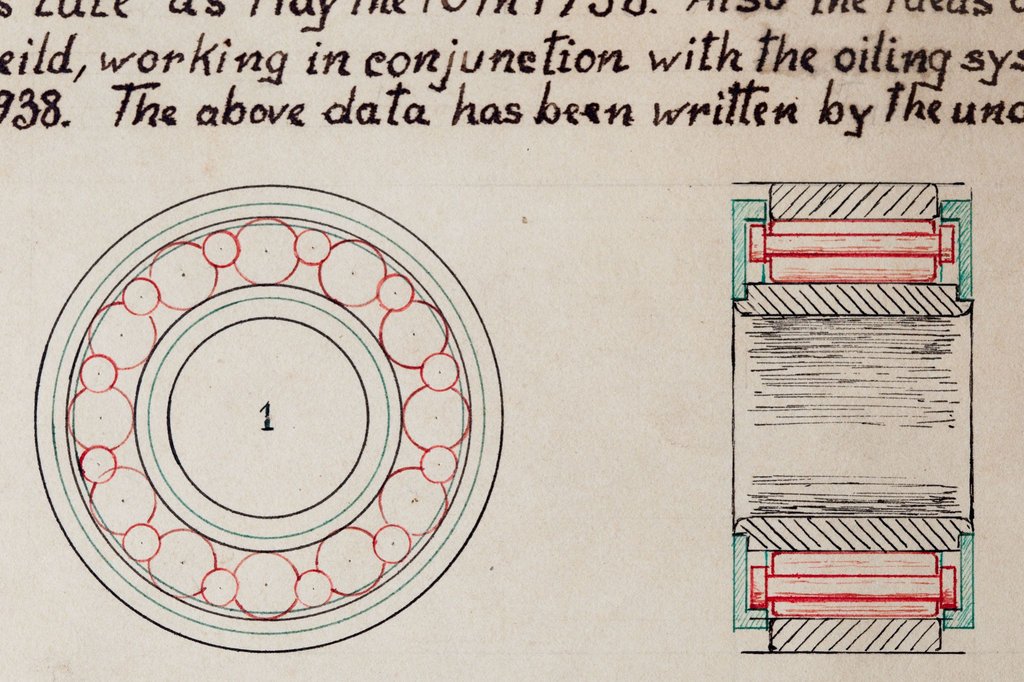 as May the 10th 1938. Also the ideas
eild, working in conjunction with the oiling sys
938. The above data has been written by the und
1